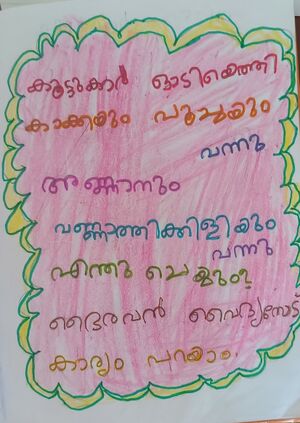 കൂട്ടുകാർ ഓടിയെത്തി
കാക്കയും പൂച്ചയും
വന്നു
അണ്ണാനും
വണ്ണാത്തിക്കിളിയും
വന്നു
എന്തു ചെയ്യും?
ഭൈരവൻ വൈദ്യനോട്
കാര്യം പറയാം.